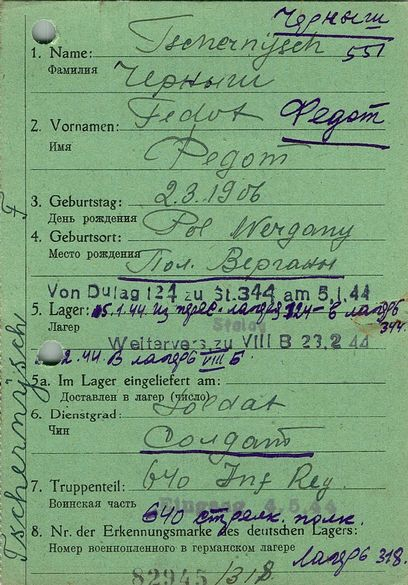 Черныш
551
1. Name: Tschernysch
Фамилия Черныш
2. Vornamen: Fedot Федот
Имя Федот
3. Geburtstag: 2.3.1906
День рождения
4. Geburtsort: Pol Wergany
Место рождения Пол. Верганы
Von Dulag 124 zu St.344 am 5.1.44
5. Lager: 5.1.44 из лагеря 124 – в лагерь
Лагерь Stalag 344
Weitervers. zu VIII B 23.2.44
2.44. в лагерь VIII Б.
5a. Im Lager eingeliefert am:
Доставлен в лагерь (число)
6. Dienstgrad: Soldat
Чин Солдат
7. Truppenteil: 640 Inf Reg.
Воинская часть Eingang 4.5.44
640 стрелк. полк.
8. Nr. der Erkennungsmarke des deutschen Lagers:
Номер военнопленного в германском лагере Лагерь 318.
82945 / 318
F Tschernysch